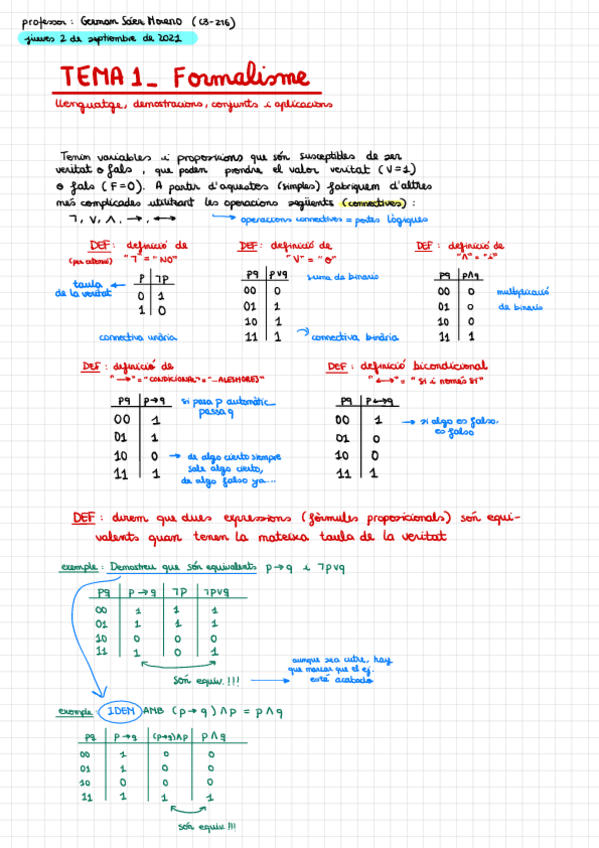 professor: German Sáez Moreno (C3-216)
jueves 2 de septiembre de 2021
TEMA 1_ Formalisme
llenguatge, demostracions, conjunts i aplicacions
Tenim variables i proposicions que són susceptibles de ser
veritat o fals, que poden prendre el valor veritat (V=1)
o fals (F=0). A partir d'aquestes (simples) fabriquem d'altres
més complicades utilitzant les operacions següents (connectives):
¬, ∨, ∧, →, ↔
→ operacions connectives = portes lògiques
DEF: definició de
"¬" = "NO"
taula de la veritat
p | ¬p
0 | 1
1 | 0
connectiva unària
DEF: definició de
"∨" = "o"
pq | p∨q
00 | 0
01 | 1
10 | 1
11 | 1
suma de binario
connectiva binària
DEF: definició de
"∧" = "i"
pq | p∧q
00 | 0
01 | 0
10 | 0
11 | 1
multiplicació
de binario
DEF: definició de
"→" = "CONDICIONAL" = "_ALESHORES"
pq | p→q
00 | 1
01 | 1
10 | 0
11 | 1
si pasa p automàtic_
passa q
→ de algo cierto siempre
sale algo cierto,
de algo falso ya...
DEF: definició bicondicional
"↔" = "SI i només SI"
pq | p↔q
00 | 1
01 | 0
10 | 0
11 | 1
→ si algo es falso.
es falso
DEF: direm que dues expressions (fòrmules proposicionals) són equi-
valents quan tenen la mateixa taula de la veritat
exemple: Demostreu que són equivalents p→q i ¬p∨q
pq | p→q | ¬p | ¬p∨q
00 | 1 | 1 | 1
01 | 1 | 1 | 1
10 | 0 | 0 | 0
11 | 1 | 0 | 1
són equiv.!!!
aunque sea cutre, hay
que marcar que el ej.
esté acabado
exemple: IDEM AMB (p→q)∧p = p∧q
pq | p→q | (p→q)∧p | p∧q
00 | 1 | 0 | 0
01 | 1 | 0 | 0
10 | 0 | 0 | 0
11 | 1 | 1 | 1
són equiv!!!